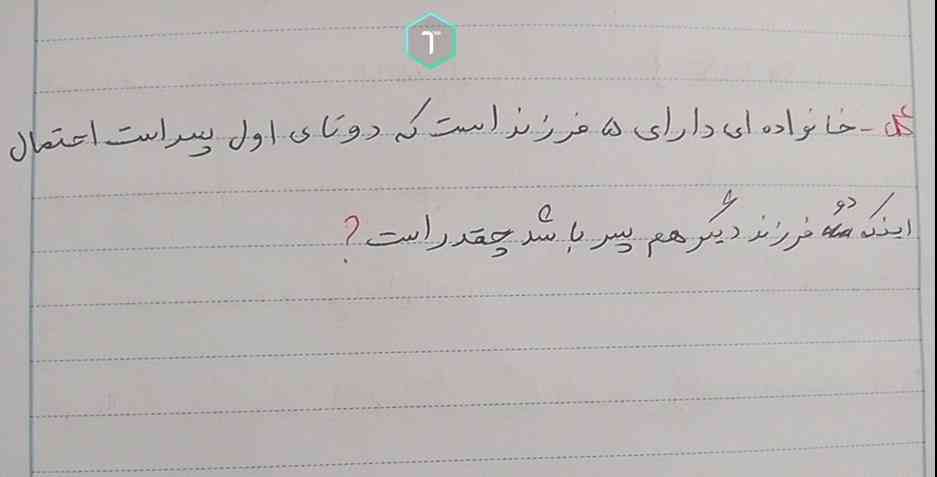 T
مثال - خانواده ای دارای ۵ فرزند است که دوتای اول پسر است احتمال
اینکه دو فرزند دیگر هم پسر باشد چقدر است؟